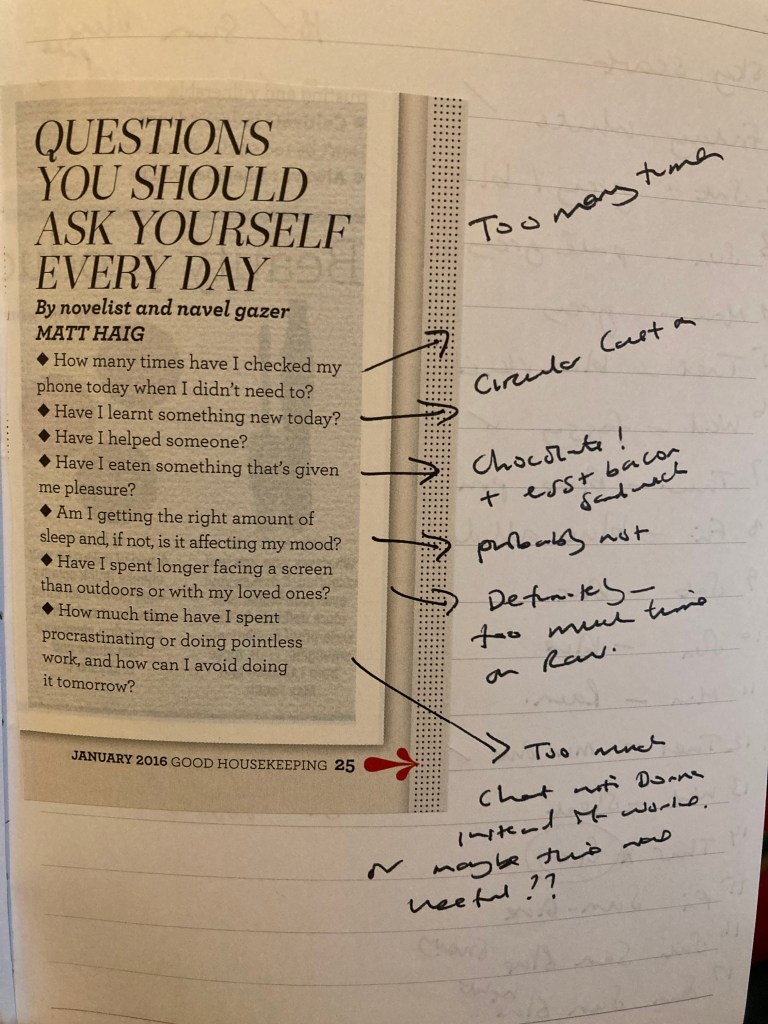 QUESTIONS
YOU SHOULD
ASK YOURSELF
EVERY DAY
By novelist and navel gazer
MATT HAIG
◆ How many times have I checked my
phone today when I didn't need to?
◆ Have I learnt something new today?
◆ Have I helped someone?
◆ Have I eaten something that's given
me pleasure?
◆ Am I getting the right amount of
sleep and, if not, is it affecting my mood?
◆ Have I spent longer facing a screen
than outdoors or with my loved ones?
◆ How much time have I spent
procrastinating or doing pointless
work, and how can I avoid doing
it tomorrow?
JANUARY 2016 GOOD HOUSEKEEPING 25
Too many times
Circular Cast on
Chocolate!
+ egg + bacon
sandwich
probably not
Definitely –
too much time
on Rav.
Too much
Chat with Donna
instead of working.
or maybe this was
useful??